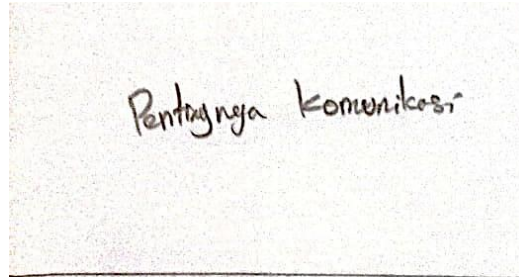 Pentingnya komunikasi